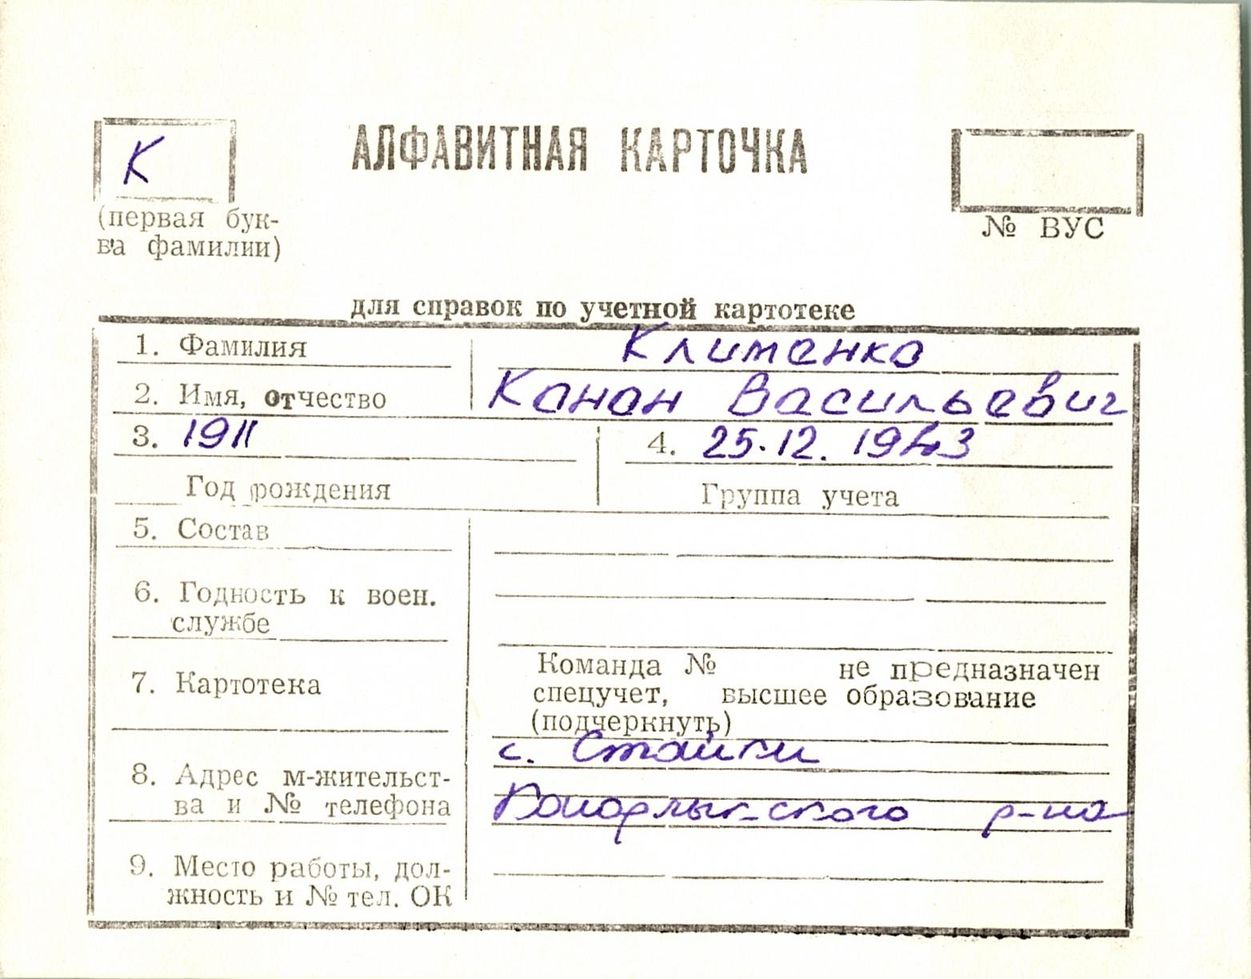 К
АЛФАВИТНАЯ КАРТОЧКА
(первая бук-
ва фамилии)
№ ВУС
для справок по учетной картотеке
1. Фамилия Клименко
2. Имя, отчество Канон Васильевич
3. 1911 4. 25.12.1943
Год рождения Группа учета
5. Состав
6. Годность к воен.
службе
7. Картотека
Команда № не предназначен
спецучет, высшее образование
(подчеркнуть)
8. Адрес м-жительст-
ва и № телефона
с. Стайки
Кагарлыкского р-на
9. Место работы, дол-
жность и № тел. ОК